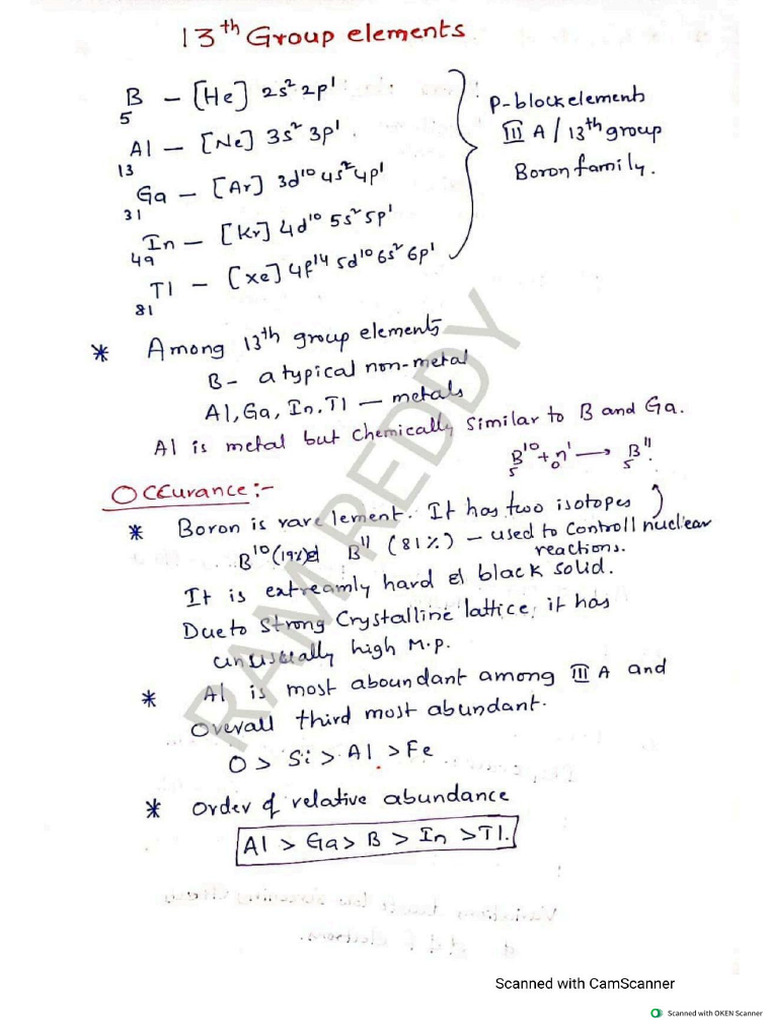 13th Group elements
5B - [He] 2s² 2p¹
13Al - [Ne] 3s² 3p¹.
31Ga - [Ar] 3d¹⁰ 4s² 4p¹
49In - [Kr] 4d¹⁰ 5s² 5p¹
81Tl - [Xe] 4f¹⁴ 5d¹⁰ 6s² 6p¹
P-block elements
III A / 13th group
Boron family.
* Among 13th group elements
B - a typical non-metal
Al, Ga, In, Tl - metals
Al is metal but chemically similar to B and Ga.
₅B¹⁰ + ₀n¹ → ₅B¹¹.
Occurance:-
* Boron is rare lement. It has two isotopes
B¹⁰ (19%) & B¹¹ (81%) - used to controll nuclear
reactions.
It is extreamly hard & black solid.
Due to strong crystalline lattice, it has
unusually high M.p.
* Al is most aboundant among III A and
overall third most abundant.
O > Si > Al > Fe
* Order of relative abundance
Al > Ga > B > In > Tl.
RAM REDDY
Scanned with CamScanner
Scanned with OKEN Scanner